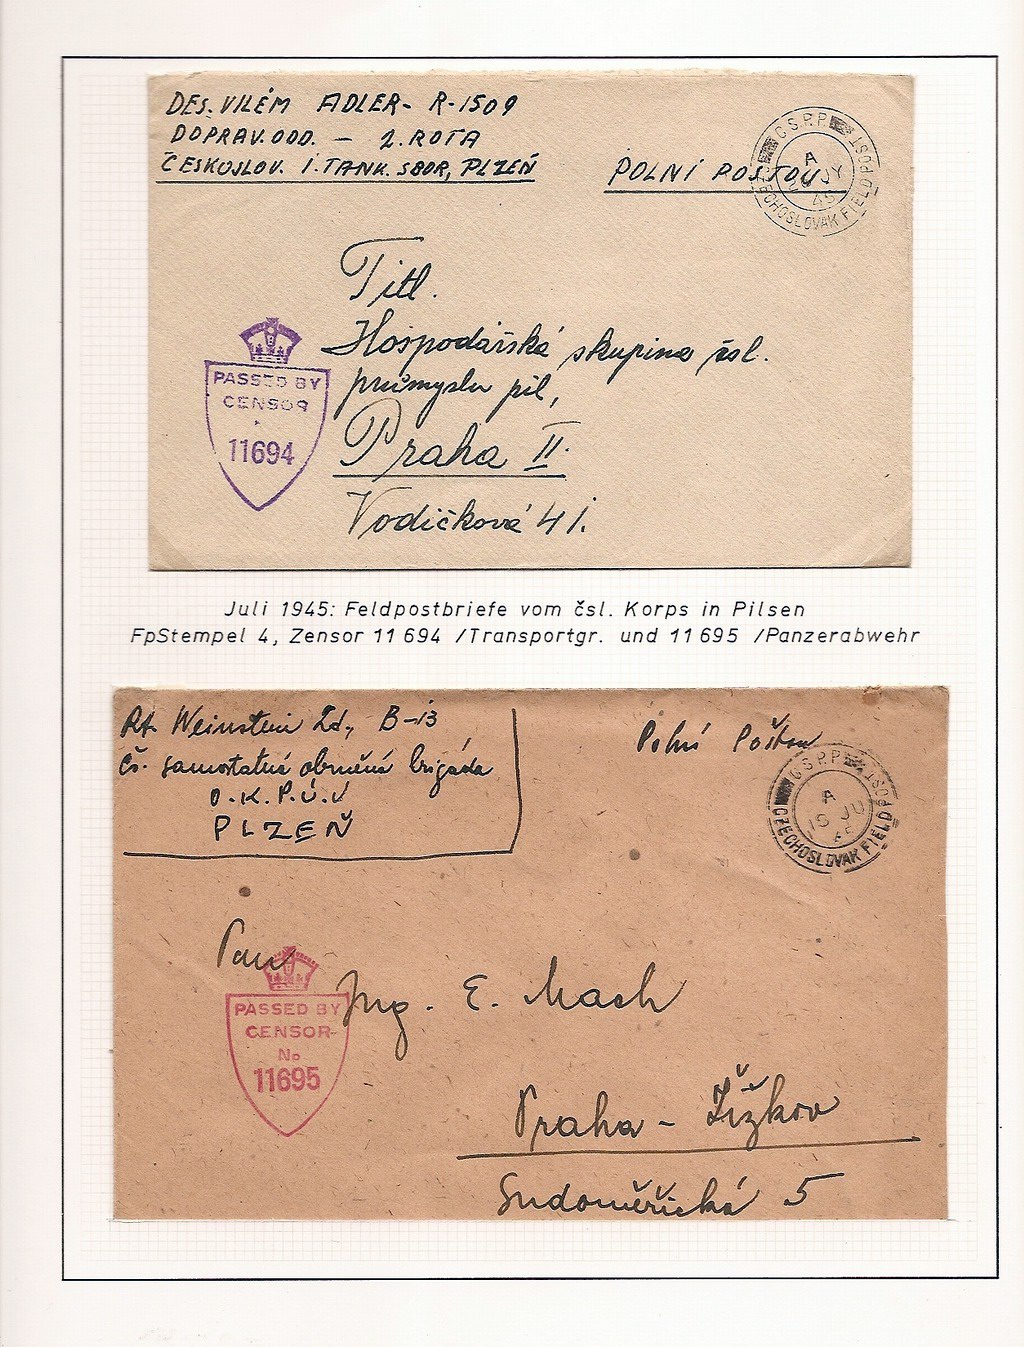 DES. VILÉM ADLER - R-1509
DOPRAV. ODD. - 2. ROTA
ČESKOSLOV. 1. TANK. SBOR, PLZEŇ
POLNÍ POŠTOU
C.S.P.P.
A
JY
45
CZECHOSLOVAK FIELD POST
Titl.
Hospodářská skupina čsl.
průmyslu pil,
Praha II.
Vodičková 41.
PASSED BY
CENSOR
11694
Juli 1945: Feldpostbriefe vom čsl. Korps in Pilsen
FpStempel 4, Zensor 11 694 /Transportgr. und 11 695 /Panzerabwehr
Rt. Weinstein Zd., B-13
Čs. samostatná obrněná brigáda
O.K.P.Ú.V
PLZEŇ
Polní Poštou
C.S.P.P.
A
JU
45
CZECHOSLOVAK FIELD POST
Pan
Ing. E. Mach
Praha - Žižkov
Sudoměřická 5
PASSED BY
CENSOR
No
11695